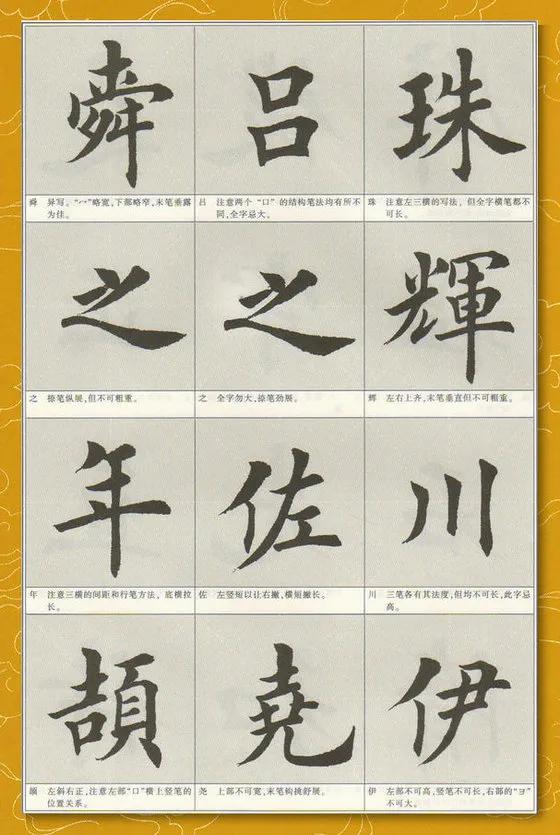 珠
珠 注意左三横的写法，但全字横笔都不
可长。
輝
辉 左右上齐,末笔垂直但不可粗重。
川
川 三笔各有其法度,但均不可长,此字忌
高。
伊
伊 左部不可高,竖笔不可长,右部的“ヨ”
不可大。
吕
吕 注意两个“口”的结构笔法均有所不
同,全字忌大。
之
之 全字勿大,捺笔劲展。
佐
佐 左竖短以让右撇,横短撇长。
堯
尧 上部不可宽,末笔钩挑舒展。
舜
舜 异写。“冖”略宽,下部略窄,末笔垂露
为佳。
之
之 捺笔纵展,但不可粗重。
年
年 注意三横的间距和行笔方法，底横拉
长。
頡
颉 左斜右正,注意左部“口”横上竖笔的
位置关系。